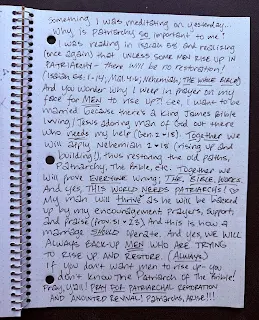 Something I was meditating on yesterday...
Why is patriarchy so important to me?
I was reading in Isaiah 58 and realizing
(once again) that unless some men rise up in
PATRIARCHY - there will be no restoration!
(Isaiah 58:1-14, Mal 4:6, Nehemiah, THE WHOLE BIBLE)
And you wonder why I weep in prayer on my
face for MEN to rise up?! See, I want to be
married because there's a King James Bible
loving / Jesus adoring man of God out there
who needs my help (Gen 2:18). Together we
will apply Nehemiah 2:18 (rising up and
building!), thus restoring the old paths,
Patriarchy, the Bible, etc. Together we
will prove EVERYONE wrong; THE BIBLE WORKS.
And yes, THIS WORLD NEEDS PATRIARCHS!
My man will thrive as he will be backed
up by my encouragement, prayers, support,
and praise (Prov. 31:23) And this is how a
marriage SHOULD operate. And yes, WE WILL
ALWAYS BACK-UP MEN WHO ARE TRYING
TO RISE UP AND RESTORE. (ALWAYS)
If you don't want men to rise up - you
don't know the Patriarch of the Bible!
Pray, y'all! PRAY FOR PATRIARCHAL RESTORATION
AND ANOINTED REVIVAL! Patriarchs, ARISE!!!